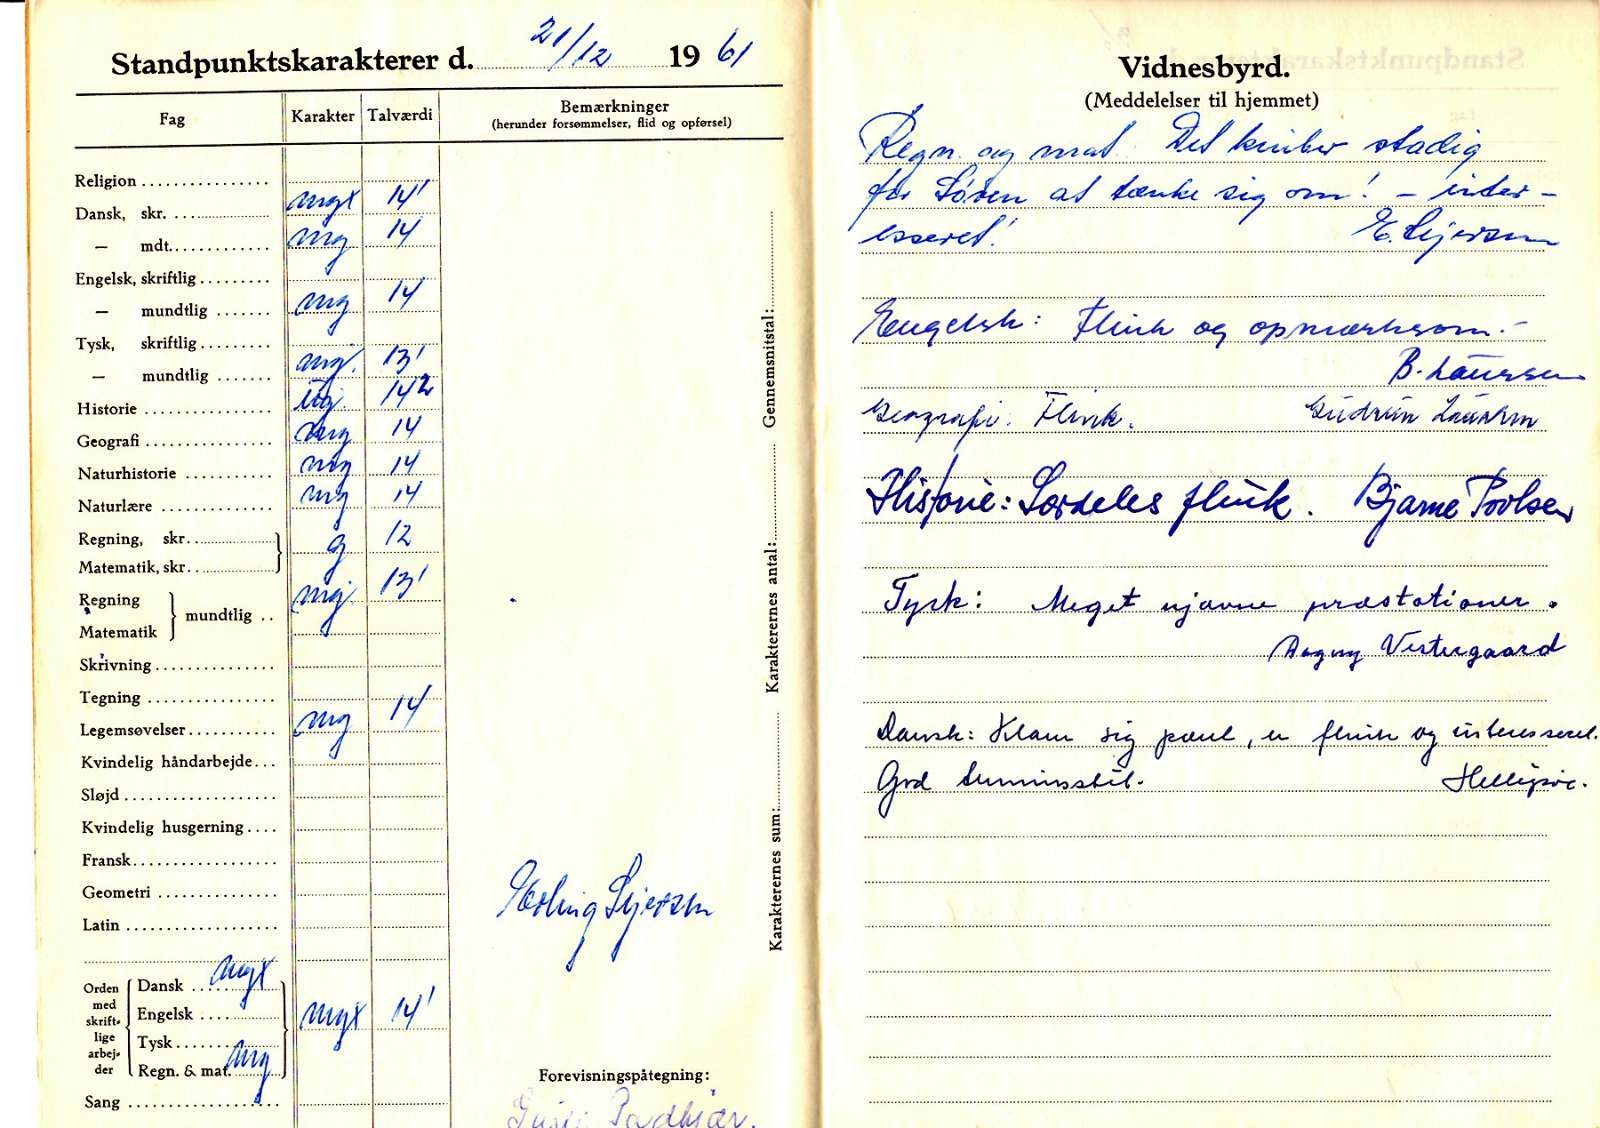 Standpunktskarakterer d. 21/12 1961
Fag Karakter Talværdi Bemærkninger
(herunder forsømmelser, flid og opførsel)
Religion
Dansk, skr. mgx 14'
— mdt. mg 14
Engelsk, skriftlig
— mundtlig mg 14
Tysk, skriftlig
— mundtlig mg 13'
Historie ug 14²
Geografi mg 14
Naturhistorie mg 14
Naturlære mg 14
Regning, skr. g 12
Matematik, skr.
Regning
mundtlig mg 13'
Matematik
Skrivning
Tegning
Legemsøvelser mg 14
Kvindelig håndarbejde
Sløjd
Kvindelig husgerning
Fransk
Geometri
Latin
Erling Sejersen
Orden med skriftlige arbejder
Dansk mgx
Engelsk mgx 14'
Tysk
Regn. & mat. mg
Sang
Gennemsnitstal:
Karakterernes antal:
Karakterernes sum:
Forevisningspåtegning:
Vidnesbyrd.
(Meddelelser til hjemmet)
Regn. og mat. Det kniber stadig
for Søren at tænke sig om! – inter-
esseret! E. Sejersen
Engelsk: Flink og opmærksom.-
B. Laursen
Geografi. Flink. Gudrun Laursen
Historie: Særdeles flink. Bjarne Povlsen
Tysk: Meget ujævne præstationer.
Dagny Vestergaard
Dansk: Klarer sig pænt, er flink og interesseret.
God